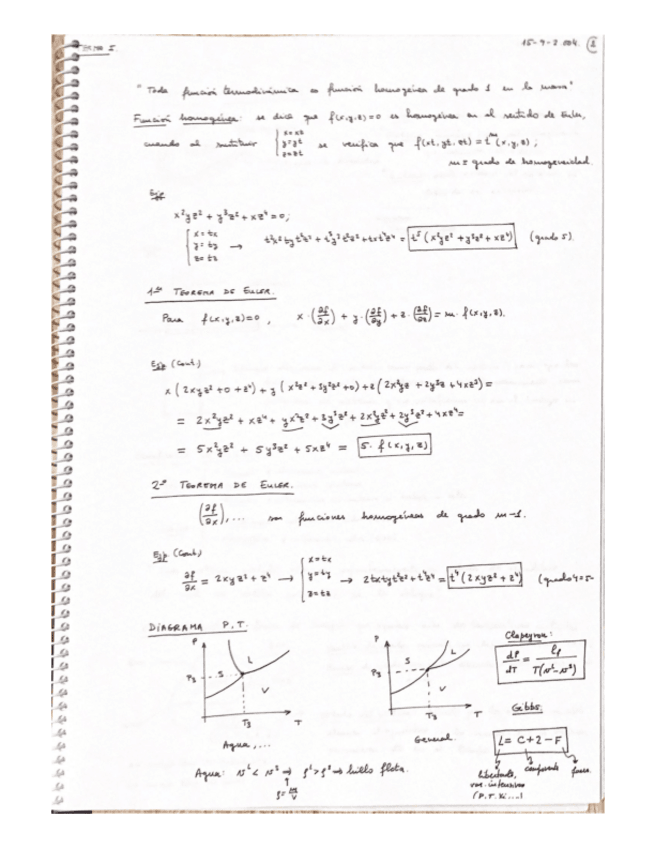 TEMA I.
15-9-2004. 1
"Toda función termodinámica es función homogénea de grado 1 en la masa"
Función homogénea: se dice que f(x,y,z)=0 es homogénea en el sentido de Euler,
cuando al sustituir { x=xt y=yt z=zt se verifica que f(xt, yt, zt) = t^m (x,y,z) ;
m = grado de homogeneidad.
Ejp
x²yz² + y³z² + xz⁴ = 0;
{ x=tx y=ty z=tz → t²x²tyt²z² + t³y³t²z² + txt⁴z⁴ = t⁵(x²yz² + y³z² + xz⁴) (grado 5).
1er TEOREMA DE EULER.
Para f(x,y,z)=0, x·(∂f/∂x) + y·(∂f/∂y) + z·(∂f/∂z) = m·f(x,y,z).
Ejp (Cont.)
x(2xyz² + 0 + z⁴) + y(x²z² + 3y²z² + 0) + z(2x²yz + 2y³z + 4xz³) =
= 2x²yz² + xz⁴ + yx²z² + 3y³z² + 2x²yz² + 2y³z² + 4xz⁴ =
= 5x²yz² + 5y³z² + 5xz⁴ = 5·f(x,y,z)
2º TEOREMA DE EULER.
(∂f/∂x), ... son funciones homogéneas de grado m-1.
Ejp (Cont.)
∂f/∂x = 2xyz² + z⁴ → { x=tx y=ty z=tz → 2txtyt²z² + t⁴z⁴ = t⁴(2xyz² + z⁴) (grado 4=5-
DIAGRAMA P,T.
P
S
L
V
P3
T3
T
Agua, ...
P
S
L
V
P3
T3
T
General.
Clapeyron:
dP/dT = lf/T(v^L - v^S)
Gibbs:
L = C+2-F
libertades, var. intensivas (P,T,Xi....)
componente
fases.
Agua: v^L < v^S → ρ^L > ρ^S → hielo flota.
ρ = m/V